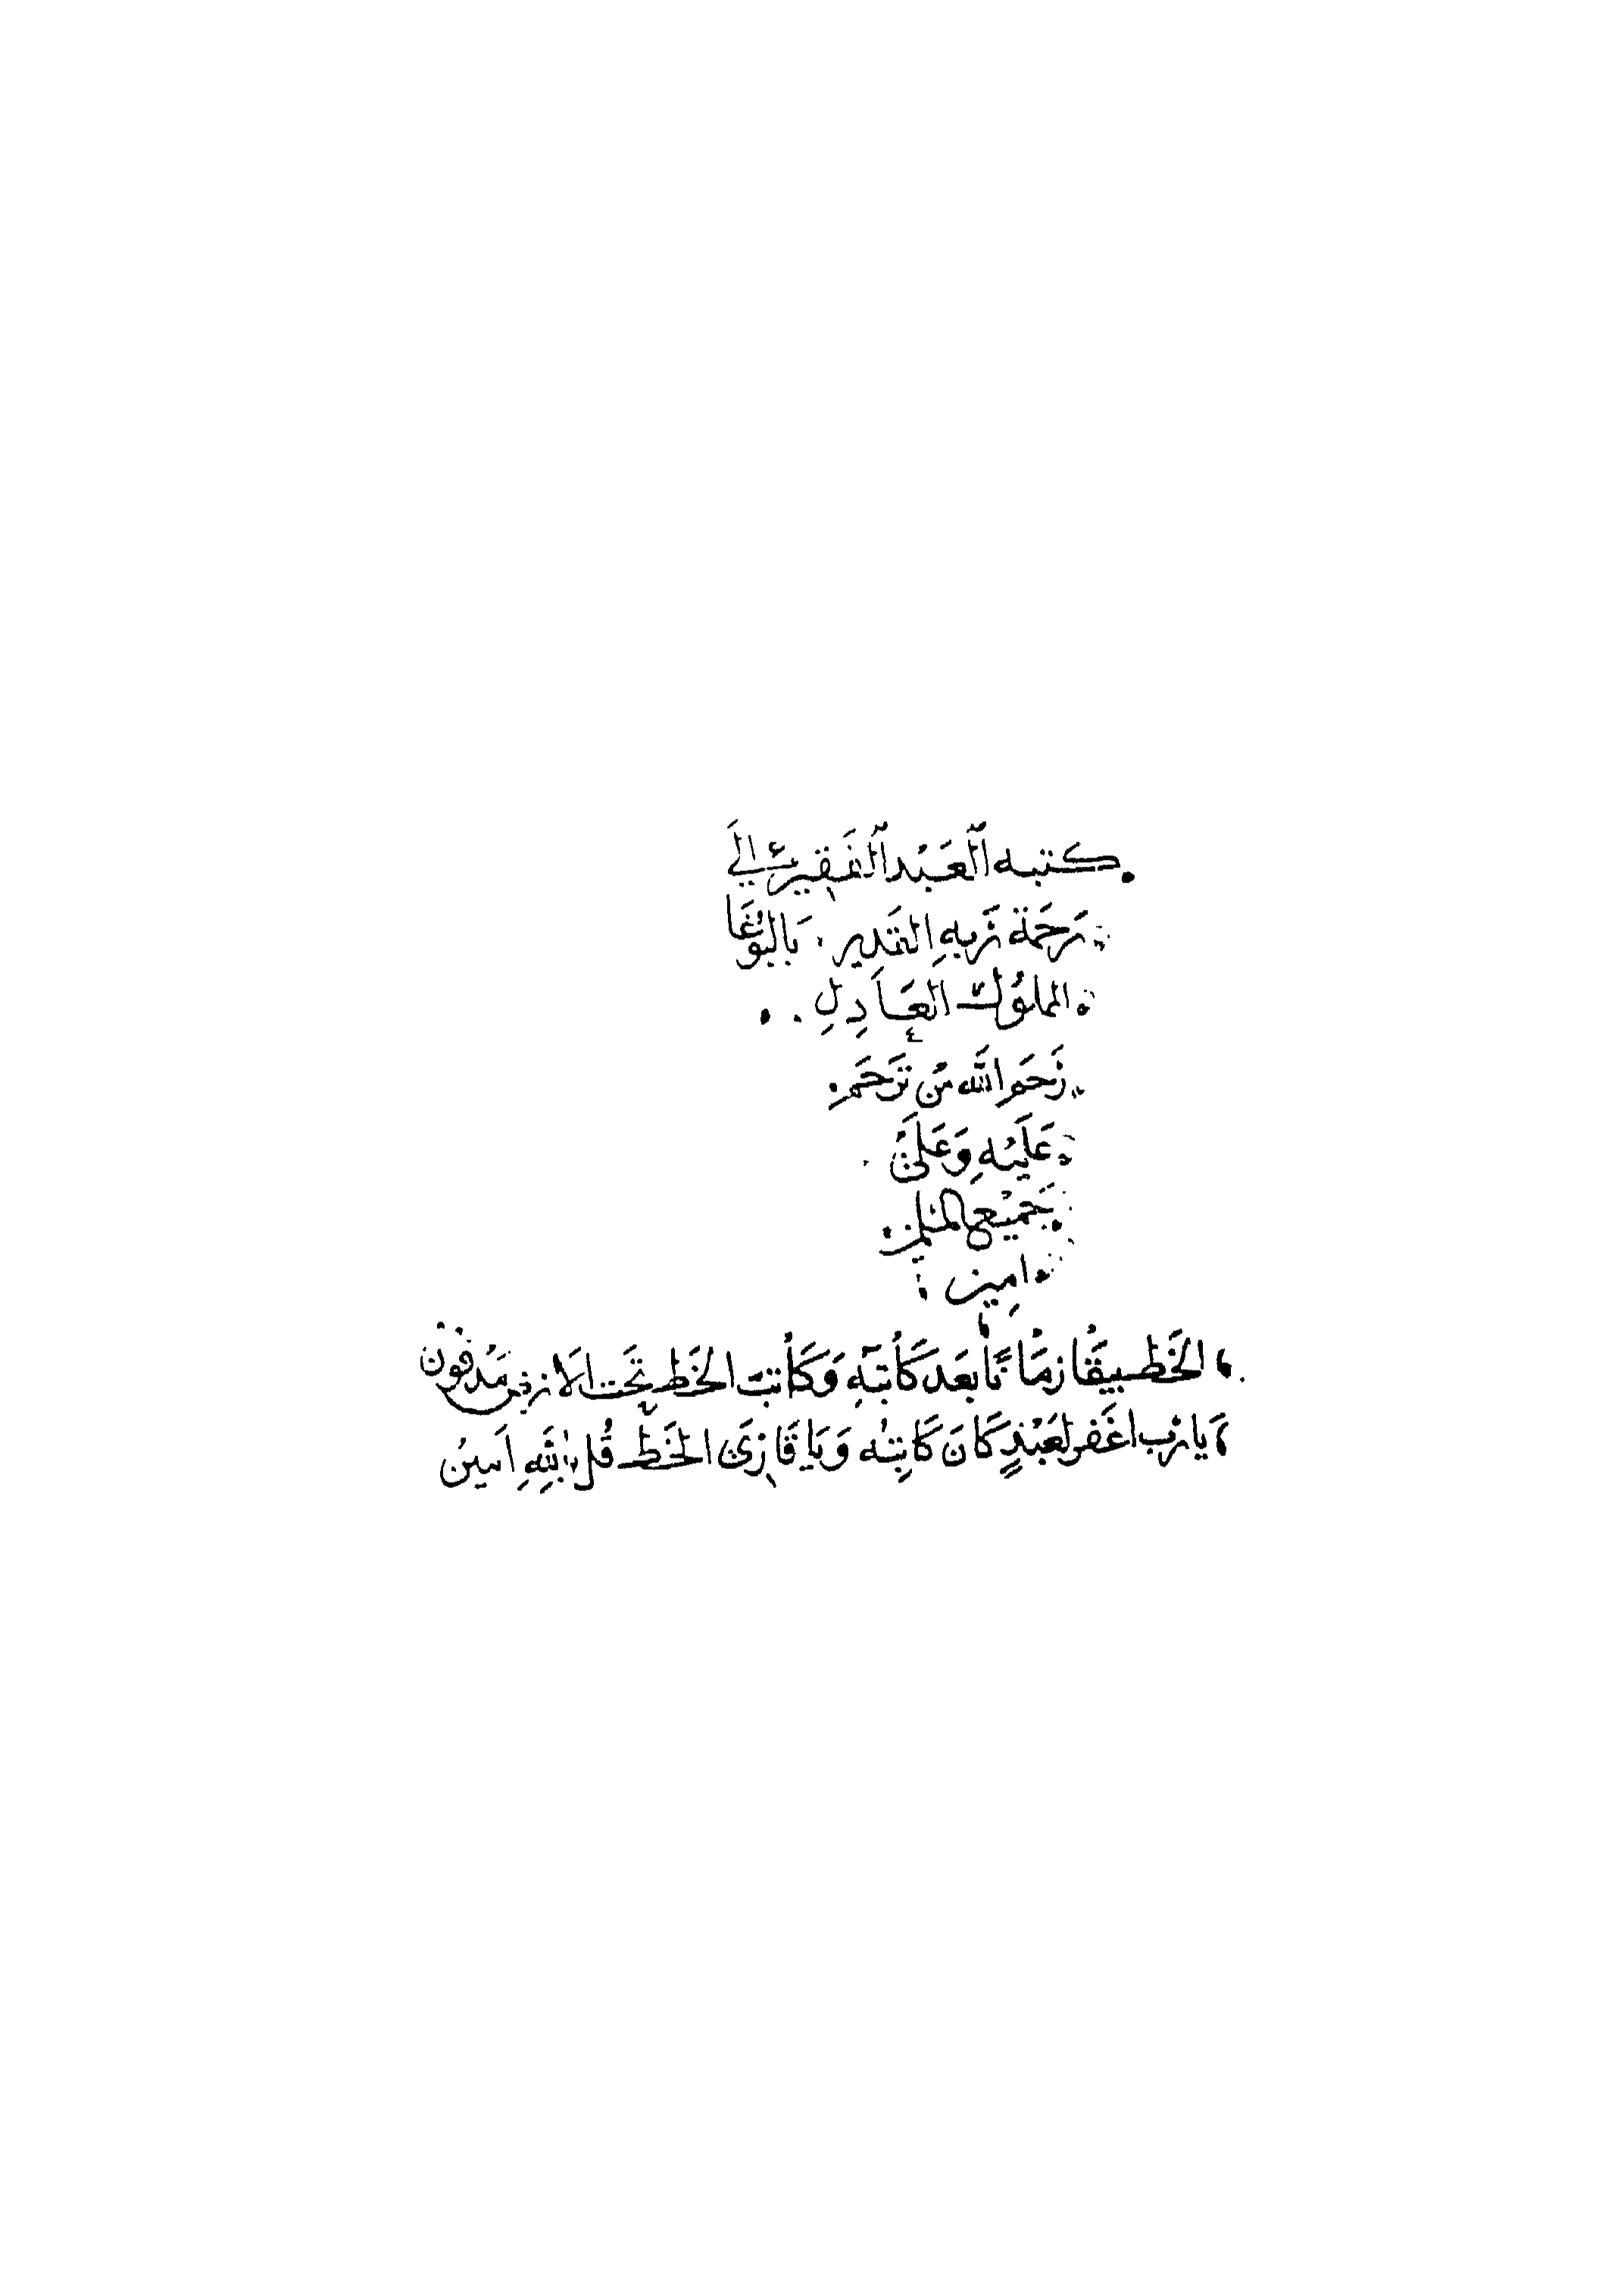 كتبه ٱلعَبْد ٱلفَقِير إلَي
رَحمَة رَبهِ القَدير . يَالبُوغَا
المملوُك العَادِلِ . .
رَحَم الله مَن تَرَحَمِ
عَلَيْه وَعَلىَ
جَميْع المسلمين
امِين :
الخَط يبقَا زمَانًا بعَد كَاتبَهِ وَكَاتبَ الخَط تحَت الاَرض مَدفُون
يا رَب اغفَر لعَبْدٍ كَانَ كَاتِبُه وَيَا قَارِىَ الخَط قُل باللهِ اَمينُ